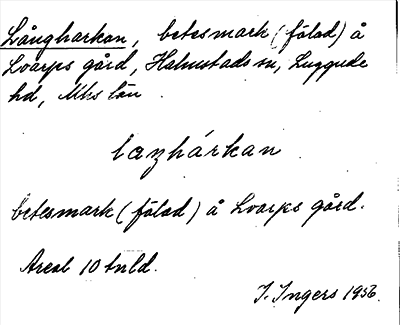 Långharkan, betesmark (fälad) å
Lvarps gård, Halmstads sn, Luggude
hd, Mhs län
lazhárkan
betesmark (fälad) å Lvarps gård.
Areal 10 tnld.
I. Ingers 1956.